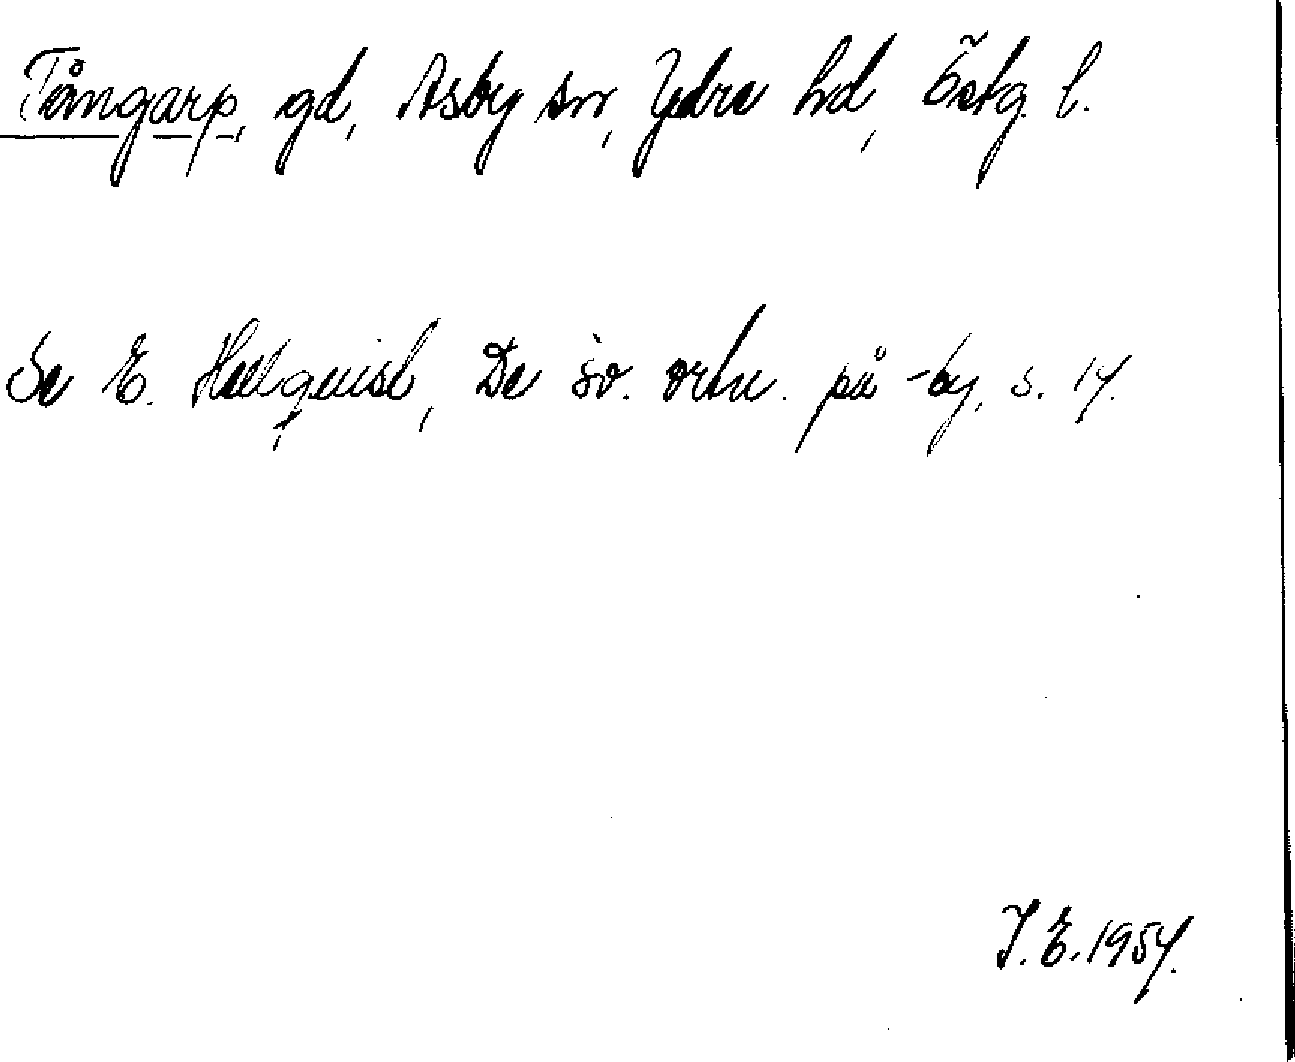 Tångarp, gd, Asby sn, Ydre hd, Östg. l.
Se E. Hellquist, De sv. ortn. på -by, s. 14.
J. E. 1954.